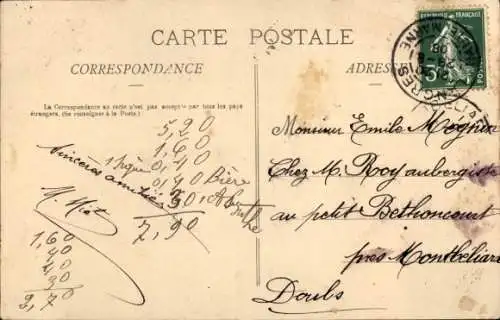 CARTE POSTALE
CORRESPONDANCE
ADRESSE
La Correspondance au recto n'est pas acceptée par tous les pays
étrangers. (Se renseigner à la Poste.)
REPUBLIQUE FRANÇAISE
5
POSTES
LANGRES
Hte MARNE
5,20
1,60
0,40
0,40 Bière
30
7,90
Sincères amitiés
1,60
40
40
30
2,70
Monsieur Emile
Chez M. Roy aubergiste
au petit Bethoncourt
près Montbéliard
Doubs